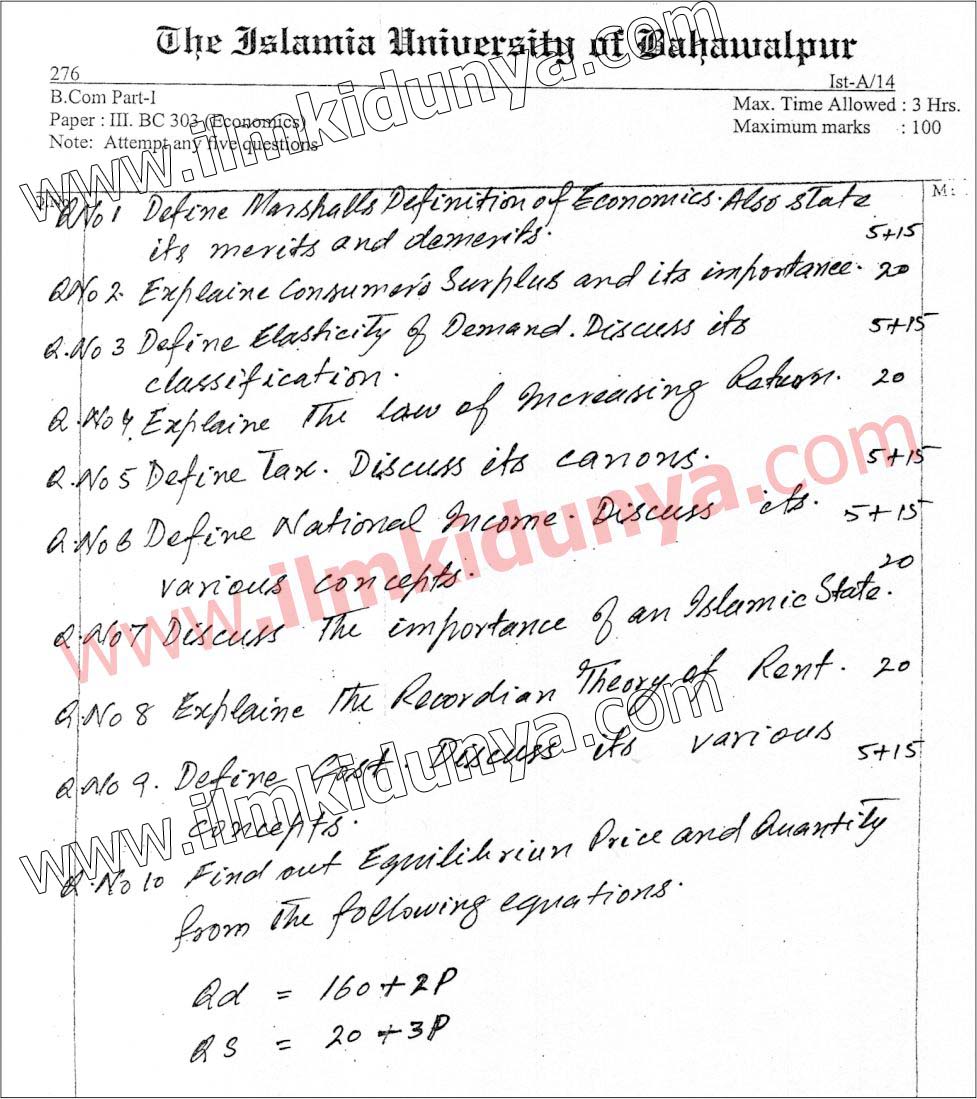 The Islamia University of Bahawalpur
276
Ist-A/14
B.Com Part-I
Max. Time Allowed : 3 Hrs.
Paper : III. BC 303 (Economics)
Maximum marks : 100
Note: Attempt any five questions
www.ilmkidunya.com
M:
Q No 1 Define Marshalls Definition of Economics. Also state
its merits and demerits. 5+15
Q No 2. Explaine Consumer's Surplus and its importance. 20
Q. No 3 Define Elasticity of Demand. Discuss its 5+15
classification.
Q. No 4. Explaine The Law of Increasing Return. 20
Q. No 5 Define Tax. Discuss its canons. 5+15
Q. No 6 Define National Income. Discuss its 5+15
various concepts.
www.ilmkidunya.com
20
Q. No 7 Discuss The importance of an Islamic State.
Q. No 8 Explaine The Recordian Theory of Rent. 20
Q. No 9. Define Cost Discuss its various 5+15
concepts.
www.ilmkidunya.com
Q. No 10 Find out Equilibriun Price and Quantity
from The following equations.
Qd = 160 + 2P
QS = 20 + 3P